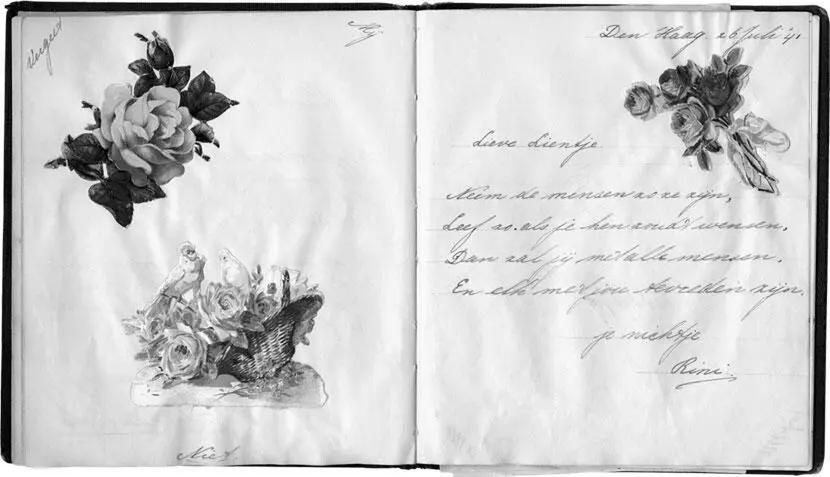 Vergeet
Mij
Niet.
Den Haag 26 Juli '41
Lieve Lientje
Neem de mensen zo ze zijn,
Leef zo als je hen zoudt wensen,
Dan zal jij met alle mensen.
En elk met jou tevreden zijn.
je nichtje
Rini.